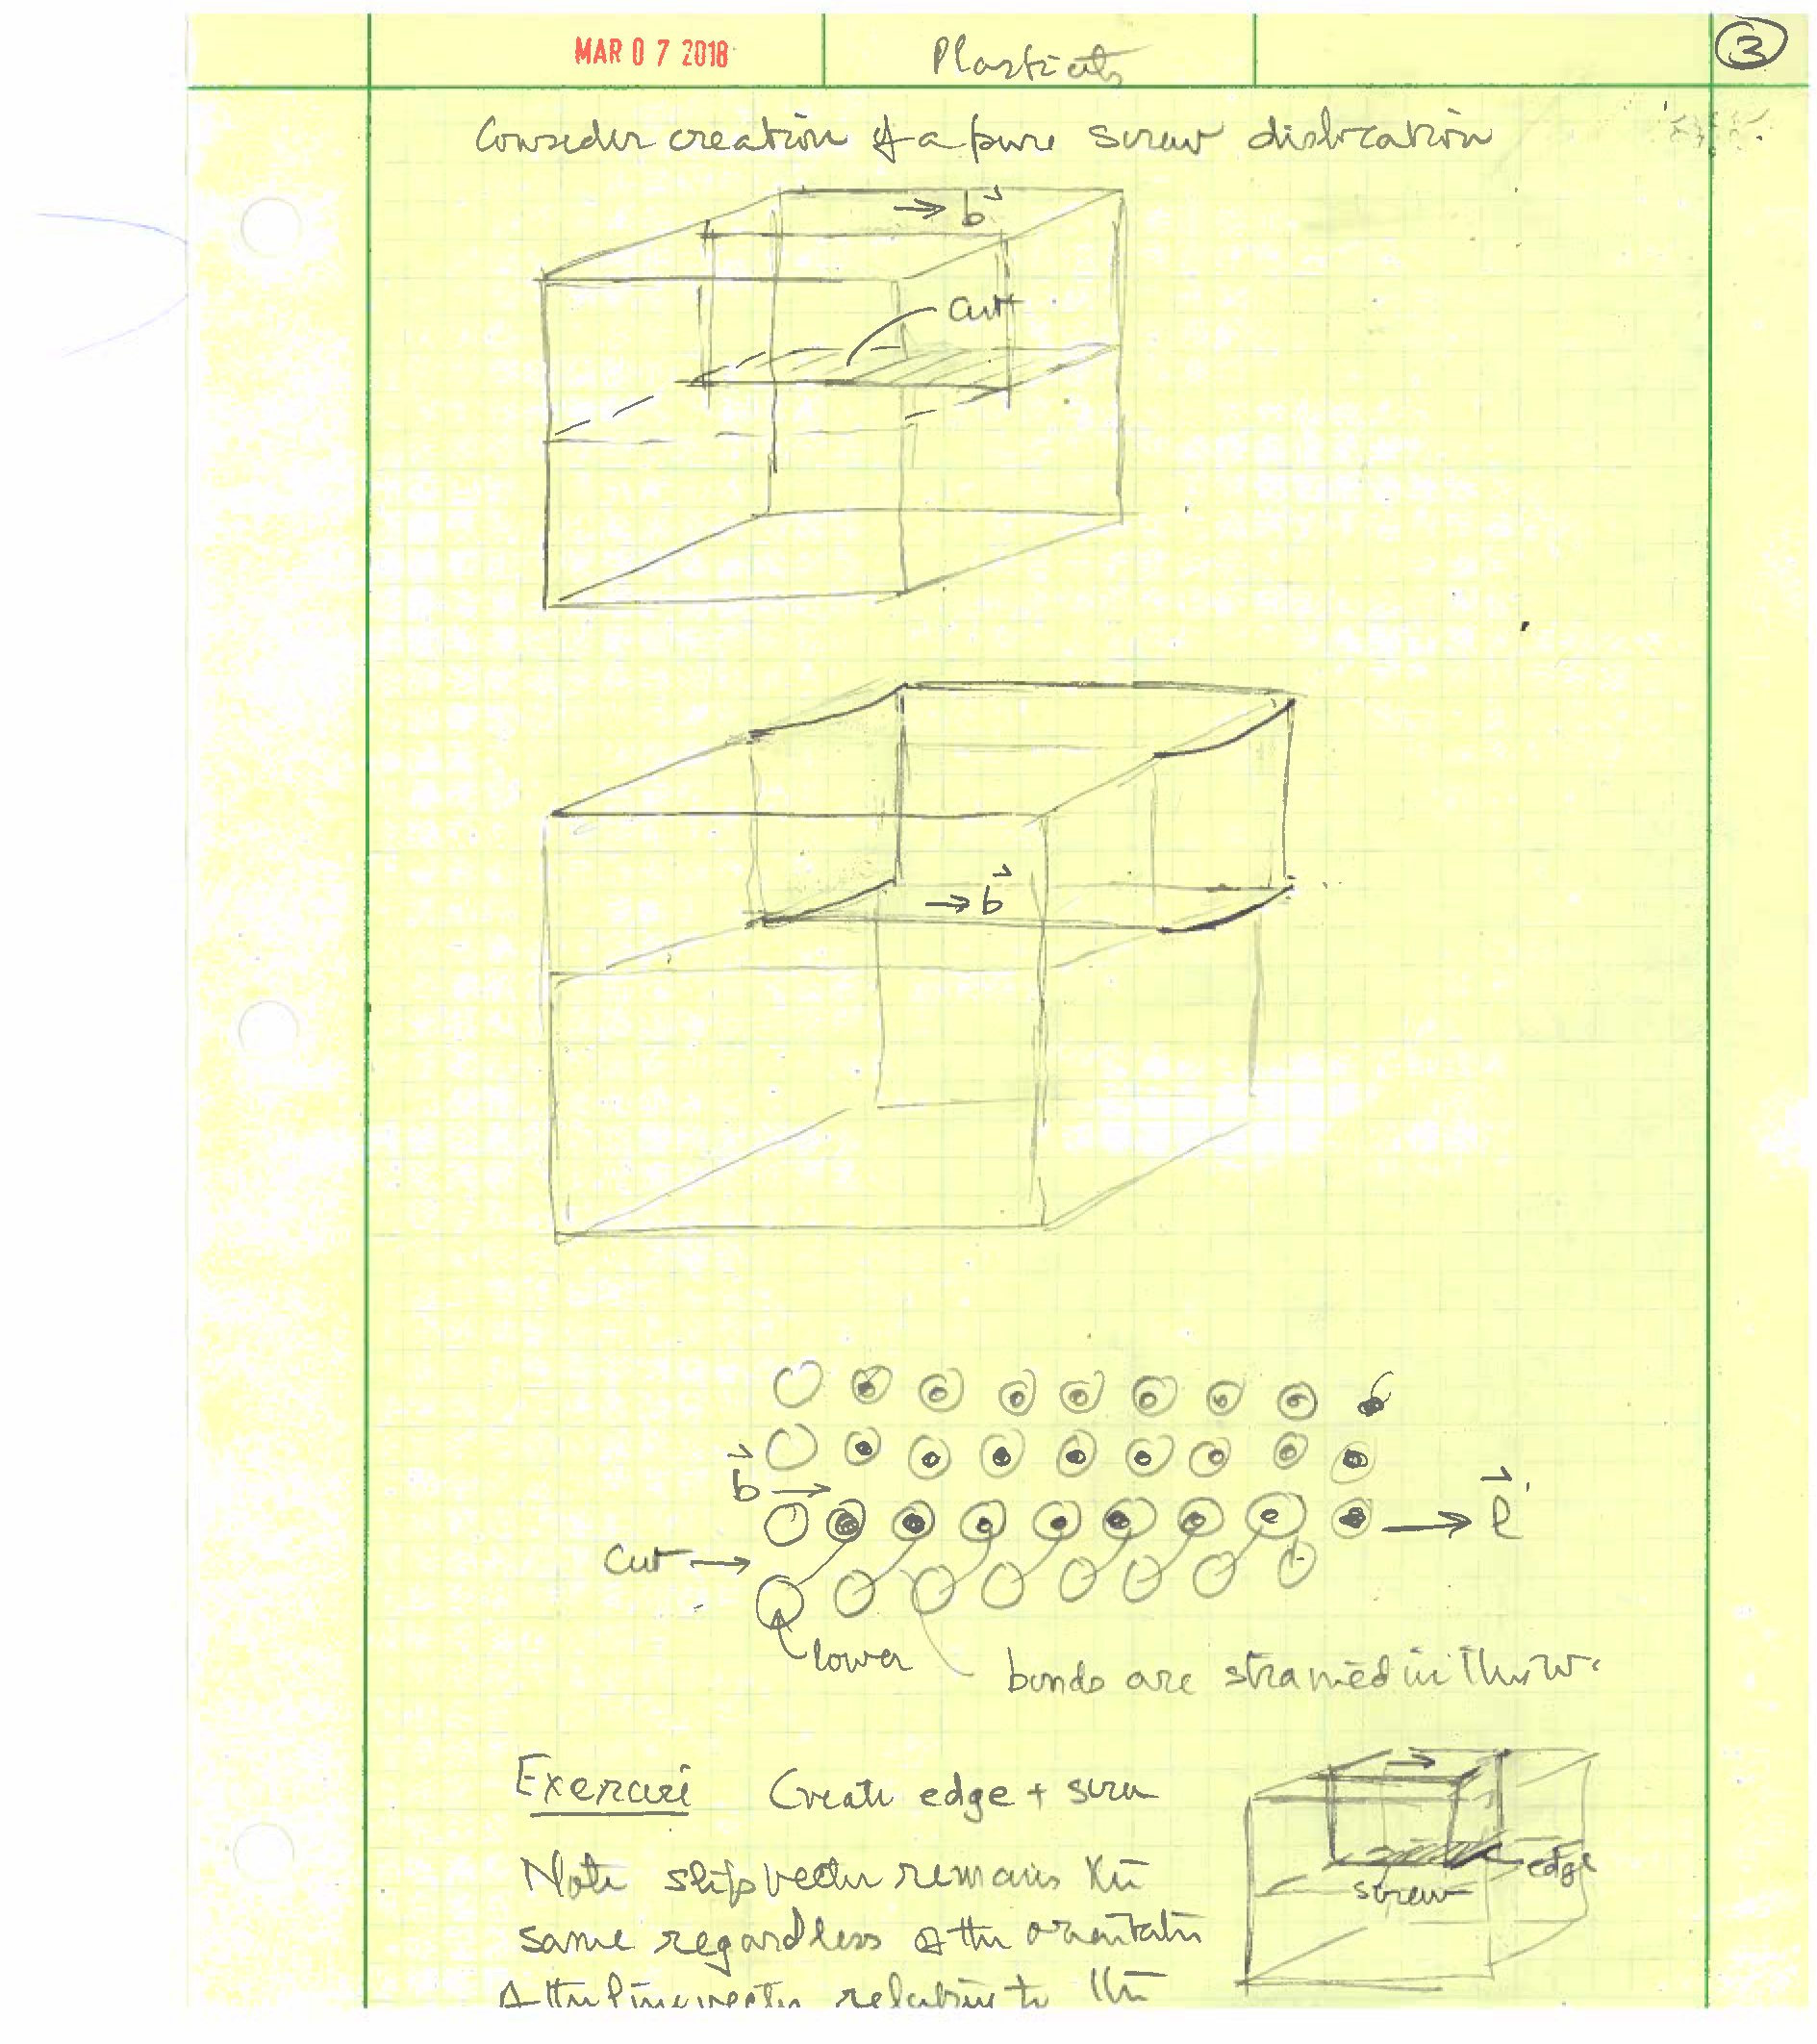 MAR 0 7 2018
Plasticity
3
Consider creation of a pure screw dislocation
→ b
cut
→ b
b →
→ l
cut →
lower
bonds are strained in this
Exercise Create edge + screw
edge
screw
Note slip vector remains the
same regardless of the orientation
of the line vector relative to the